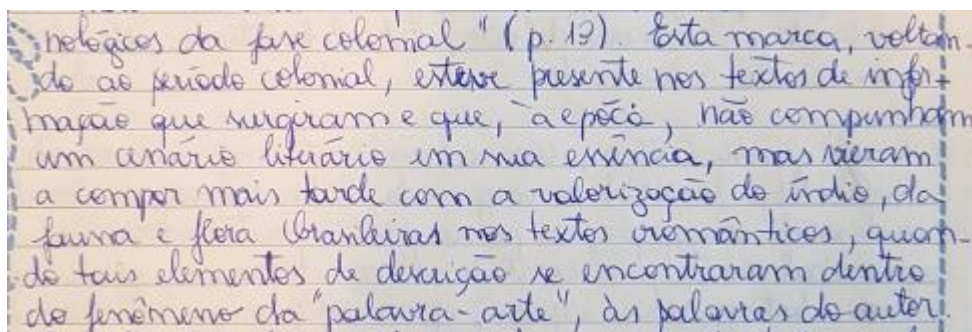 nológicos da fase colonial" (p. 13). Esta marca, voltan-
do ao período colonial, esteve presente nos textos de infor-
mação que surgiram e que, à época, não compunham
um cenário literário em sua essência, mas vieram
a compor mais tarde com a valorização do índio, da
fauna e flora brasileiras nos textos românticos, quan-
do tais elementos de descrição se encontraram dentro
do fenômeno da "palavra-arte", às palavras do autor.